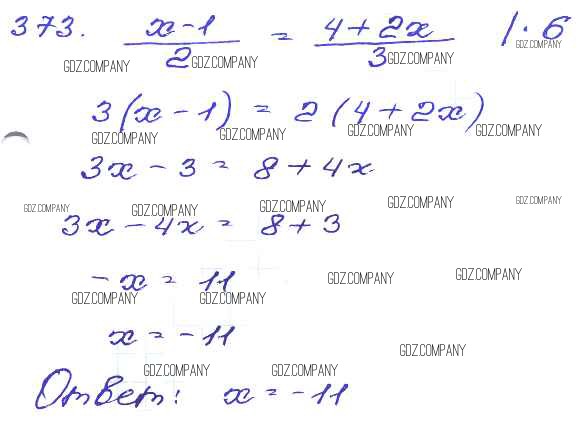 373. x-1/2 = 4+2x/3 | · 6
GDZ.COMPANY GDZ.COMPANY GDZ.COMPANY GDZ.COMPANY
3(x-1) = 2(4+2x)
GDZ.COMPANY GDZ.COMPANY GDZ.COMPANY GDZ.COMPANY
3x-3 = 8+4x
GDZ.COMPANY GDZ.COMPANY GDZ.COMPANY GDZ.COMPANY GDZ.COMPANY
3x-4x = 8+3
-x = 11
GDZ.COMPANY GDZ.COMPANY GDZ.COMPANY GDZ.COMPANY
x = -11
GDZ.COMPANY GDZ.COMPANY GDZ.COMPANY
Ответ: x = -11